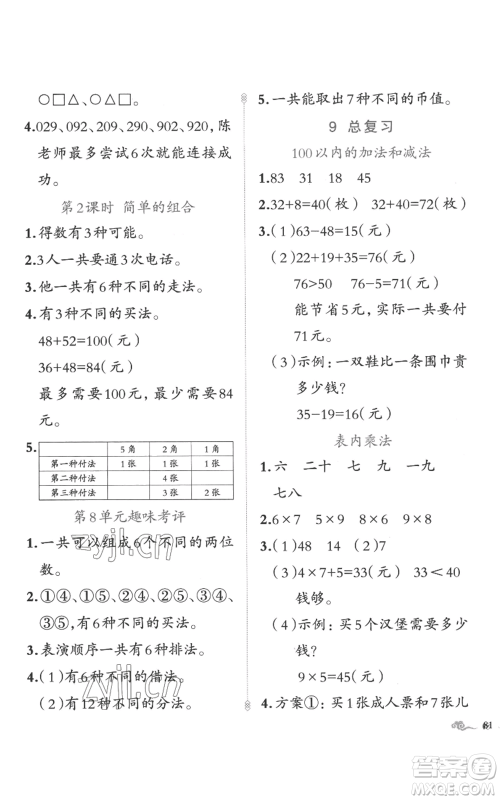 ○□△、□○△。
4.029、092、209、290、902、920，陈
老师最多尝试6次就能连接成
功。
第2课时 简单的组合
1.得数有3种可能。
2.3人一共要通3次电话。
3.他一共有6种不同的走法。
4.有3种不同的买法。
48+52=100(元)
36+48=84(元)
最多需要100元，最少需要84
元。
5.
5角 2角 1角
第一种付法 1张 1张 1张
第二种付法 4张
第三种付法 3张 2张
第8单元趣味考评
1.一共可以组成6个不同的两位
数。
2.①④、①⑤、②④、②⑤、③④、
③⑤，有6种不同的买法。
3.表演顺序一共有6种排法。
4.(1)有6种不同的借法。
(2)有12种不同的分法。
5.一共能取出7种不同的币值。
9 总复习
100以内的加法和减法
1.83 31 18 45
2.32+8=40(枚) 32+40=72(枚)
3.(1)63-48=15(元)
(2)22+19+35=76(元)
76>50 76-5=71(元)
能节省5元，实际一共要付
71元。
(3)示例：一双鞋比一条围巾贵
多少钱？
35-19=16(元)
表内乘法
1.六 二十 七 九 一九
七八
2.6×7 5×9 8×7 6×8
3.(1)48 14 (2)7
(3)4×5+13=33(元) 33<40
钱够。
(4)示例：买5个汉堡需要多少
钱？
9×5=45(元)
4.方案①：买1张成人票和7张儿
61
zyjl.cn
zyjl.cn
答案圈
MXQE.COM